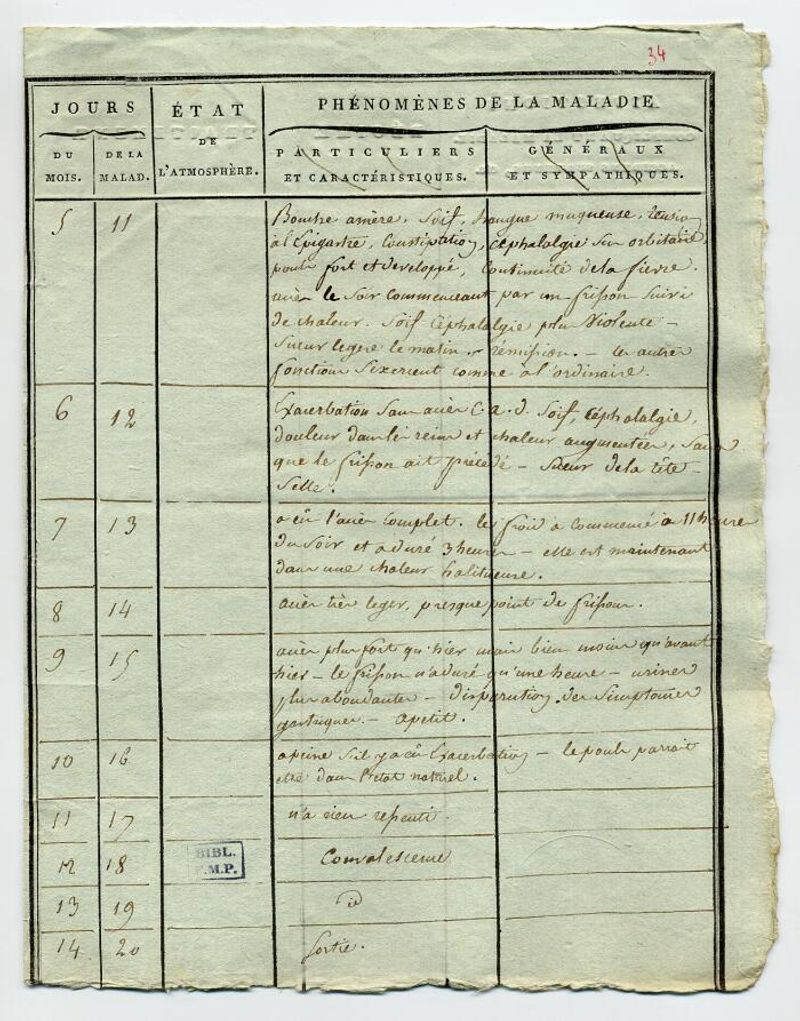 34
JOURS
ÉTAT
DE
L'ATMOSPHÈRE.
PHÉNOMÈNES DE LA MALADIE
DU
MOIS.
DE LA
MALAD.
PARTICULIERS
ET CARACTÉRISTIQUES.
GÉNÉRAUX
ET SYMPATHIQUES.
5 11 Bouche amère, soif, langue muqueuse, tension
à l'Epigastre, constipation, céphalalgie sur orbitaire,
pouls fort et developpé, continuité de la fievre.
accès le soir commencant par un frisson suivi
de chaleur. soif céphalalgie plus violente –
sueur legere le matin. rémission. – les autres
fonctions s'exercent comme à l'ordinaire.
6 12 Exacerbation sans accès c. a. d. soif, céphalalgie,
douleur dans les reins et chaleur augmentées, sans
que le frisson ait précédé – sueur de la tête –
selle.
7 13 a eû l'accès complet. le froid a commencé à 11 heures
du soir et a duré 3 heures – elle est maintenant
dans une chaleur halitueuse.
8 14 accès très leger, presque point de frisson.
9 15 accès plus fort qu'hier mais bien moins qu'avant
hier – le frisson n'a duré qu'une heure – urines
plus abondantes – disparution des simptomes
gastriques – apetit.
10 16 apeine s'il y a eû Exacerbation – le pouls parroit
être dans l'état naturel.
11 17 n'a rien ressenti.
12 18 Convalescence
BIBL.
F.M.P.
13 19 id
14 20 sortie.